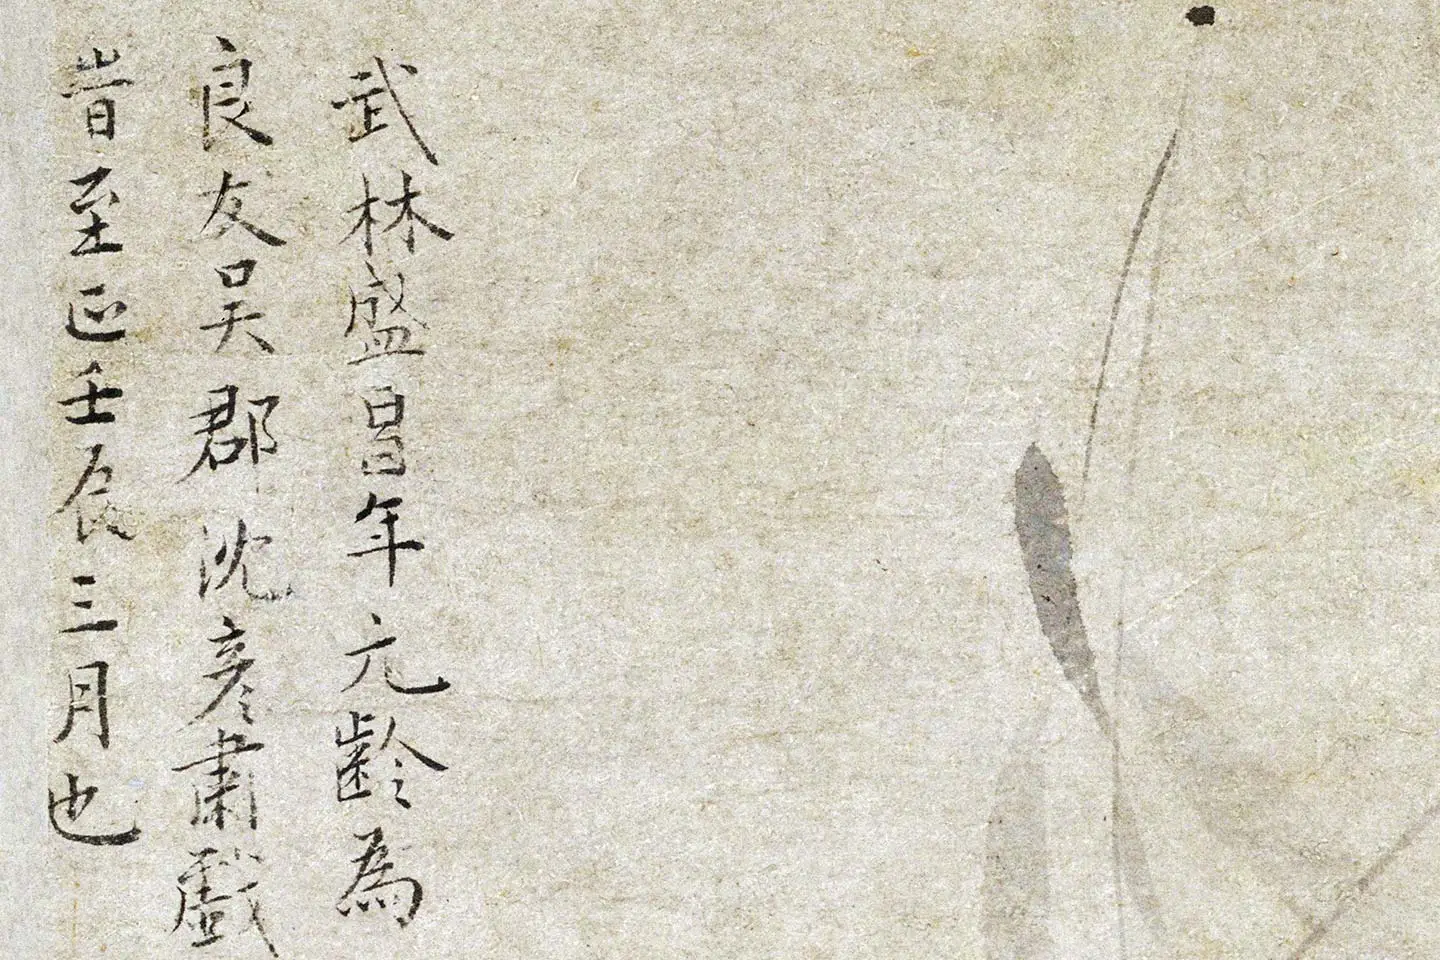 武林盛昌年元齡為
良友吴郡沈彦肅戲
旹至正壬辰三月也